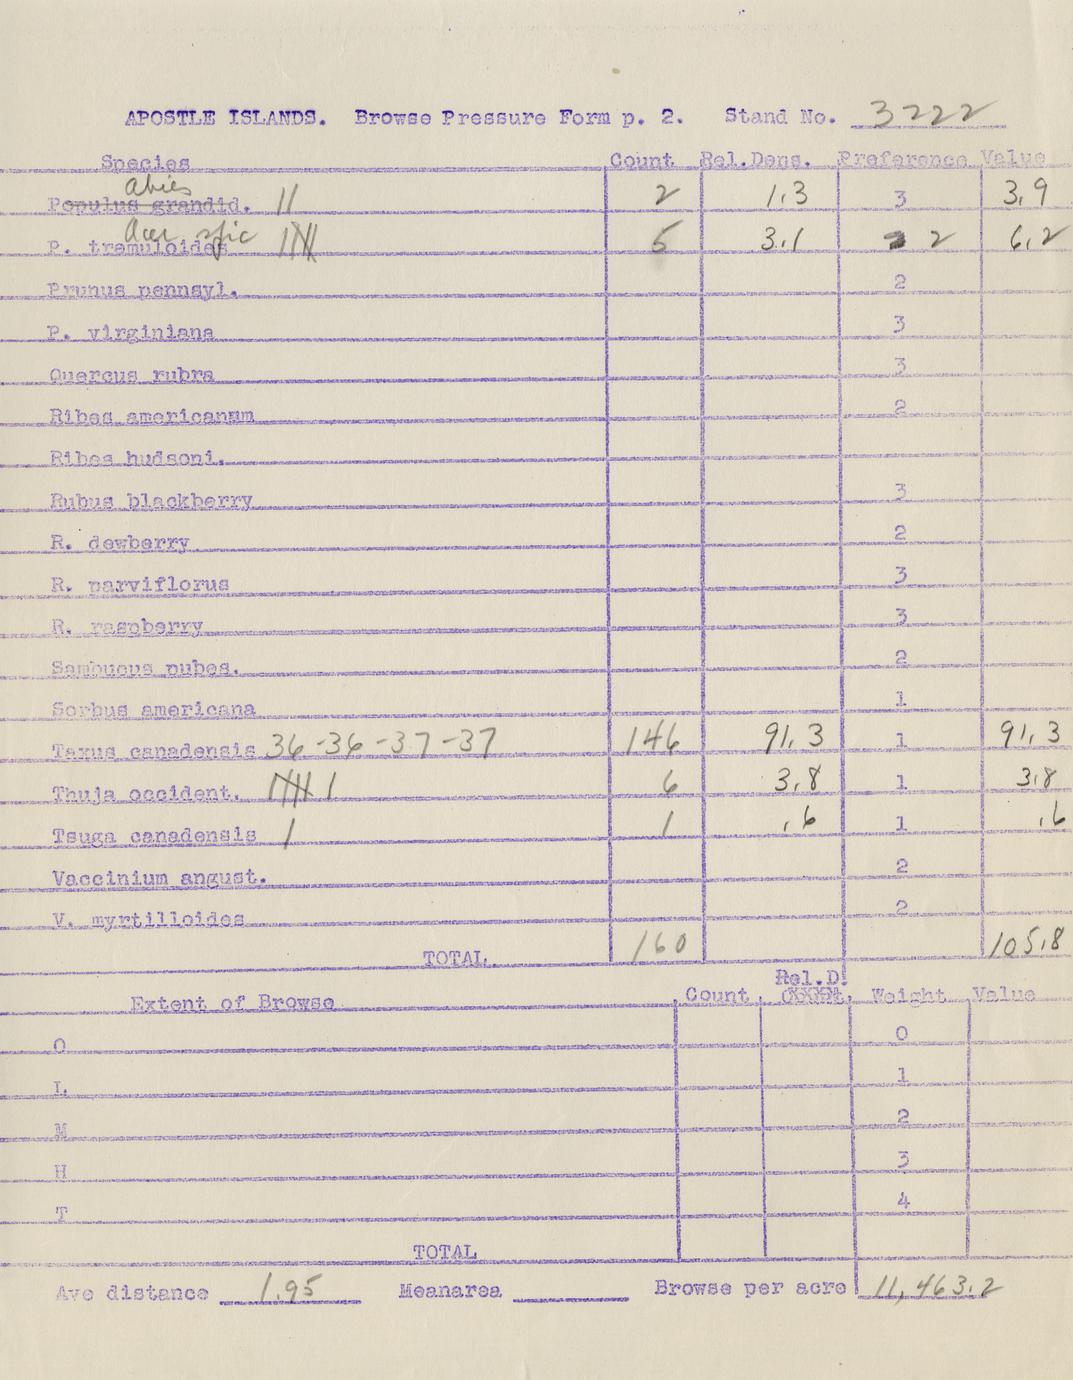 APOSTLE ISLANDS. Browse Pressure Form p. 2. Stand No. 3222
Species Count Rel.Dens. Preference Value
Abies
Populus grandid. || 2 1.3 3 3.9
Acer spic
P. tremuloides |||| 5 3.1 2 6.2
Prunus pennsyl. 2
P. virginiana 3
Quercus rubra 3
Ribes americanum 2
Ribes hudsoni.
Rubus blackberry 3
R. dewberry 2
R. parviflorus 3
R. raspberry 3
Sambucus pubes. 2
Sorbus americana 1
Taxus canadensis 36-36-37-37 146 91.3 1 91.3
Thuja occident. |||| | 6 3.8 1 3.8
Tsuga canadensis | 1 .6 1 .6
Vaccinium angust. 2
V. myrtilloides 2
TOTAL 160 105.8
Rel.D.
Extent of Browse Count Weight Value
O 0
L 1
M 2
H 3
T 4
TOTAL
Ave distance 1.95 Meanarea Browse per acre 11,463.2